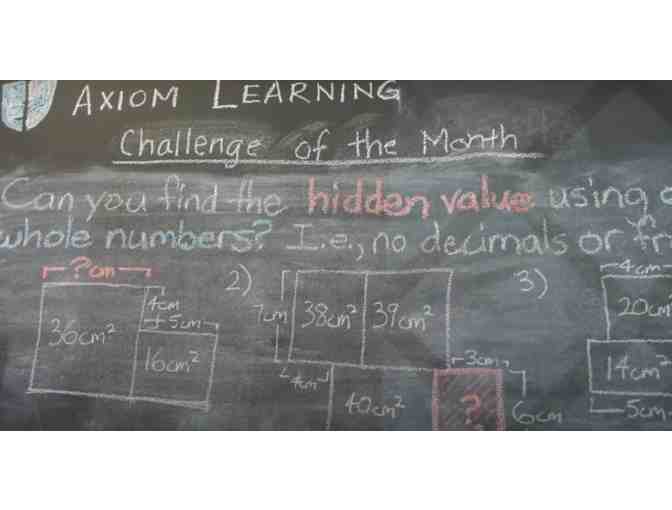 AXIOM LEARNING
Challenge of the Month
Can you find the hidden value using
whole numbers? I.e., no decimals or
?cm
36cm²
4cm
5cm
16cm²
2)
7cm
38cm² 39cm²
4cm
40cm²
3cm
?
6cm
3)
4cm
20cm
14cm²
5cm